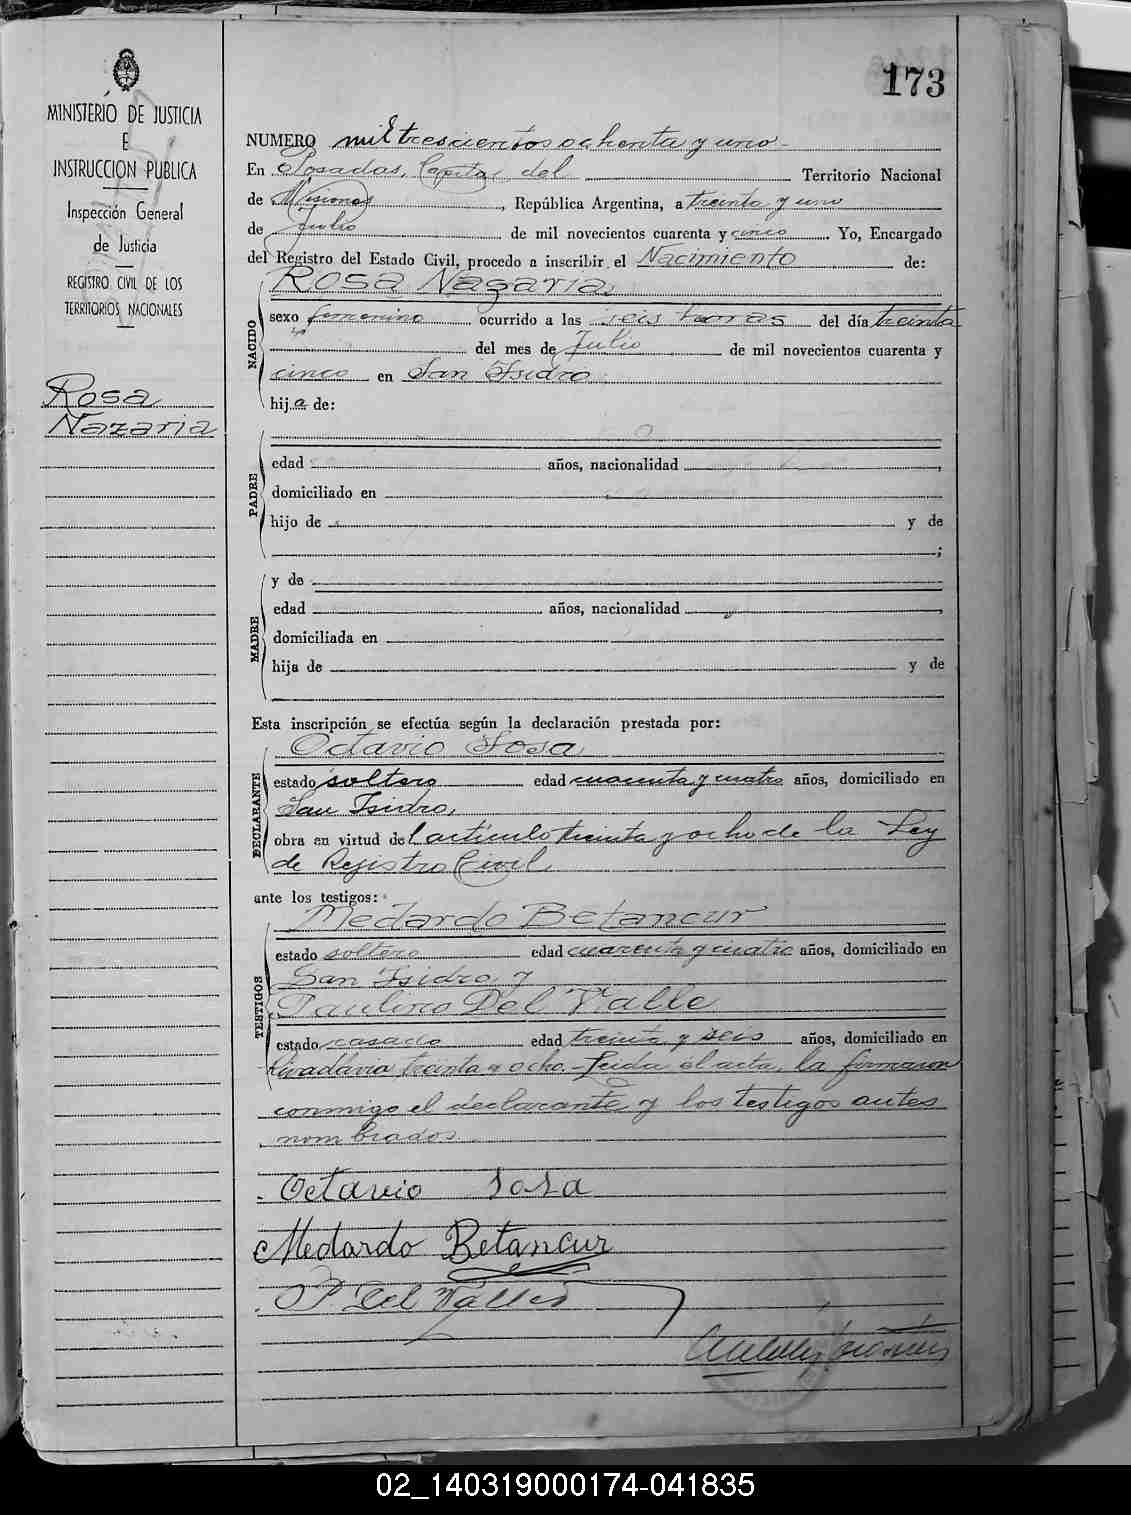 173
MINISTERIO DE JUSTICIA
E
INSTRUCCION PUBLICA
Inspección General
de Justicia
REGISTRO CIVIL DE LOS
TERRITORIOS NACIONALES
Rosa
Nazaria
NUMERO mil trescientos ochenta y uno
En Posadas, Capital del Territorio Nacional
de Misiones, República Argentina, a treinta y uno
de Julio de mil novecientos cuarenta y cinco. Yo, Encargado
del Registro del Estado Civil, procedo a inscribir el Nacimiento de:
Rosa Nazaria
NACIDO
sexo femenino ocurrido a las seis horas del día treinta
del mes de Julio de mil novecientos cuarenta y
cinco en San Isidro
hija de:
PADRE
edad años, nacionalidad ,
domiciliado en
hijo de y de
;
MADRE
y de
edad años, nacionalidad ,
domiciliada en
hija de y de
Esta inscripción se efectúa según la declaración prestada por:
Octavio Sosa
DECLARANTE
estado soltero edad cuarenta y cuatro años, domiciliado en
San Isidro,
obra en virtud del artículo treinta y ocho de la Ley
de Registro Civil
ante los testigos:
Medardo Betancur
TESTIGOS
estado soltero edad cuarenta y cuatro años, domiciliado en
San Isidro y
Paulino Del Valle
estado casado edad treinta y seis años, domiciliado en
Rivadavia treinta y ocho.- Leida el acta, la firmaron
conmigo el declarante y los testigos antes
nombrados.
Octavio Sosa
Medardo Betancur
P. Del Valle
02_140319000174-041835